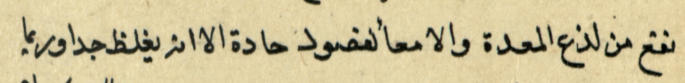 نفع من لذع المعدة والامعأ لفضول حادة الا انه يغلظ جدا وربما